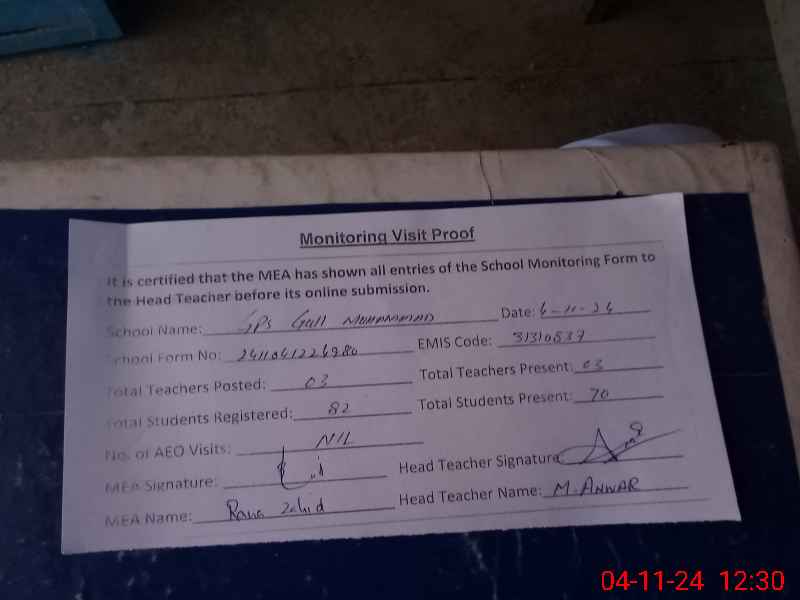 Monitoring Visit Proof
It is certified that the MEA has shown all entries of the School Monitoring Form to
the Head Teacher before its online submission.
School Name: GPS Gull MUHAMMAD Date: 6-11-24
School Form No: 2411041226980 EMIS Code: 31310537
Total Teachers Posted: 03 Total Teachers Present: 03
Total Students Registered: 82 Total Students Present: 70
No. of AEO Visits: NIL
MEA Signature: Head Teacher Signature:
MEA Name: Rana Zahid Head Teacher Name: M. ANWAR
04-11-24 12:30